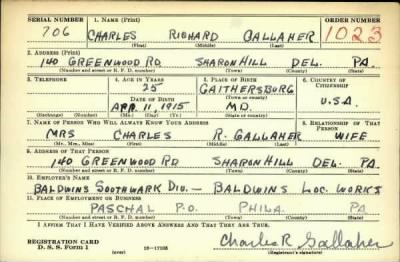 SERIAL NUMBER 1. NAME (Print) ORDER NUMBER
706 CHARLES RICHARD GALLAHER 1023
(First) (Middle) (Last)
2. ADDRESS (Print)
140 GREENWOOD RD SHARON HILL DEL. PA
(Number and street or R. F. D. number) (Town) (County) (State)
3. TELEPHONE 4. AGE IN YEARS 5. PLACE OF BIRTH 6. COUNTRY OF CITIZENSHIP
25 GAITHERSBURG
DATE OF BIRTH (Town or county)
APR. 11, 1915 MD. U.S.A.
(Exchange) (Number) (Mo.) (Day) (Yr.) (State or country)
7. NAME OF PERSON WHO WILL ALWAYS KNOW YOUR ADDRESS 8. RELATIONSHIP OF THAT PERSON
MRS CHARLES R. GALLAHER WIFE
(Mr., Mrs., Miss) (First) (Middle) (Last)
9. ADDRESS OF THAT PERSON
140 GREENWOOD RD SHARON HILL DEL. PA.
(Number and street or R. F. D. number) (Town) (County) (State)
10. EMPLOYER'S NAME
BALDWINS SOOTHWARK DIV. — BALDWINS LOC. WORKS
11. PLACE OF EMPLOYMENT OR BUSINESS
PASCHAL P.O. PHILA. PA
(Number and street or R. F. D. number) (Town) (County) (State)
I AFFIRM THAT I HAVE VERIFIED ABOVE ANSWERS AND THAT THEY ARE TRUE.
REGISTRATION CARD
D. S. S. Form 1 (over) 16—17105 Charles R. Gallaher
(Registrant's signature)